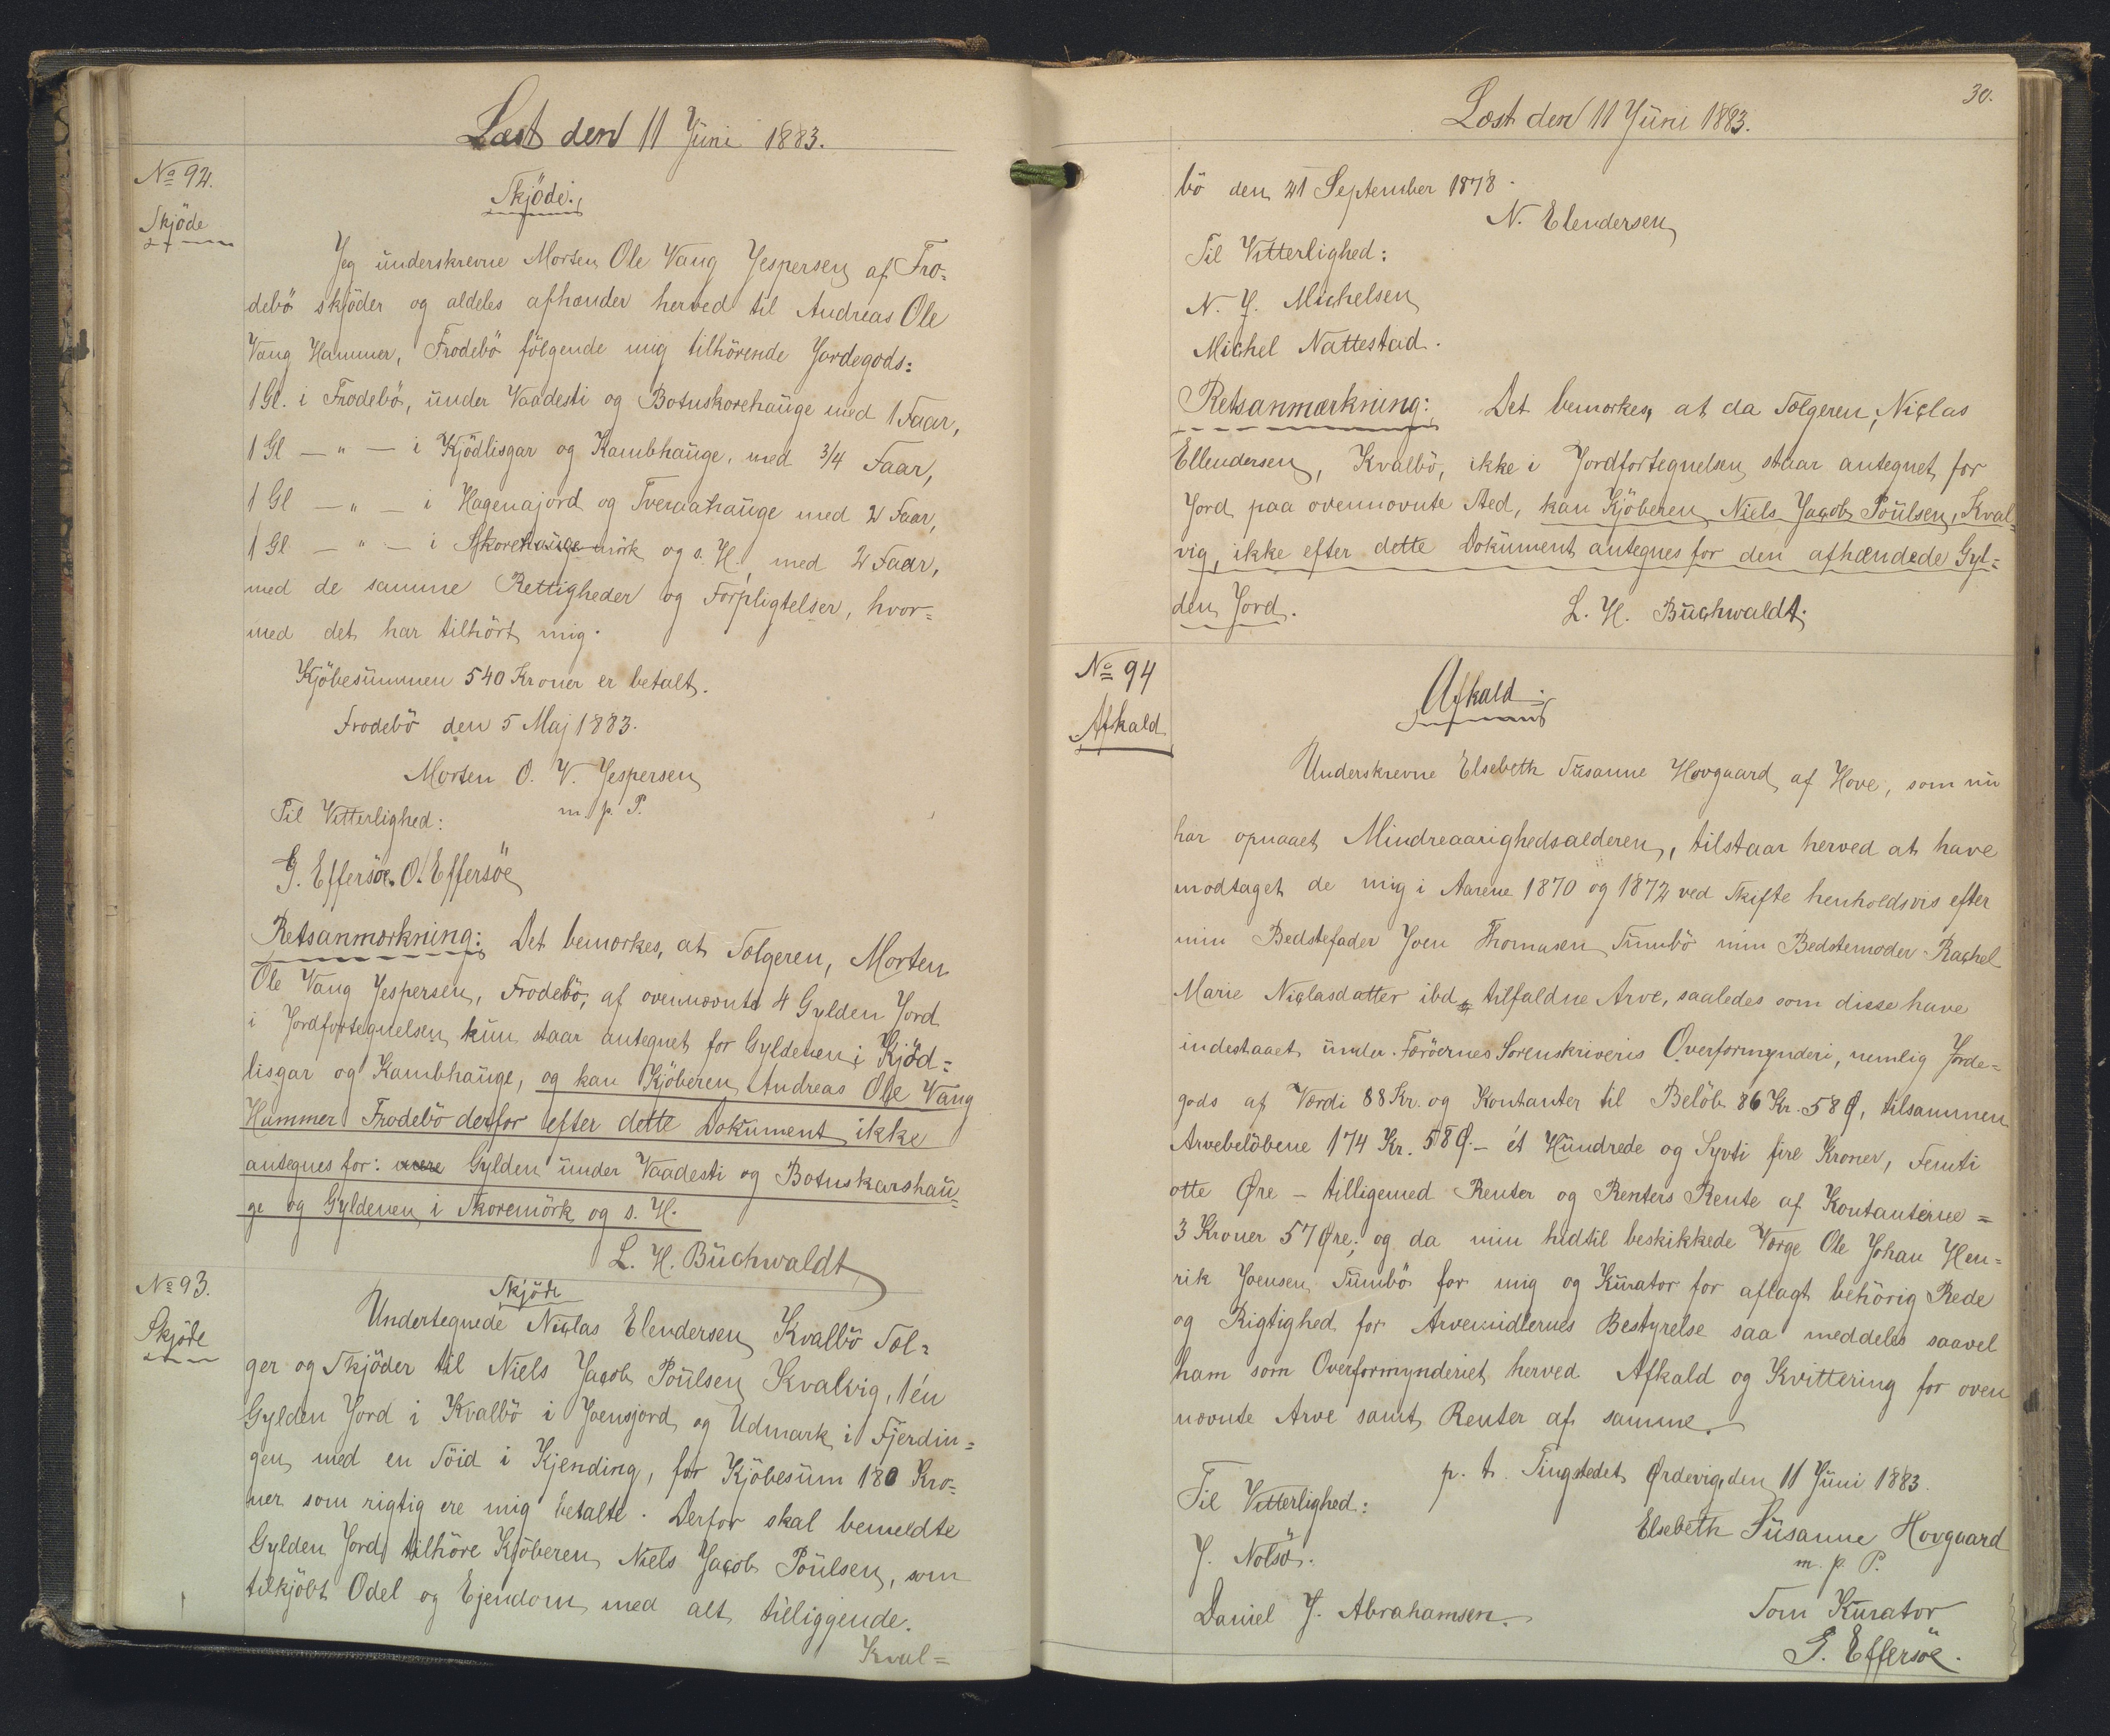 Læst den 11 Juni 1883.
No 92.
Skjöde
Skjöde.
Jeg underskrevne Morten Ole Vang Jespersen af Fro=
debö skjöder og aldeles afhænder herved til Andreas Ole
Vang Hammer, Frodebö fölgende mig tilhörende Jordegods:
1 Gl. i Frodebö, under Vaadesti og Botnskorehauge med 1 Faar,
1 Gl — " — i Kjödlisgar og Kambhauge, med 3/4 Faar,
1 Gl — " — i Hagenajord og Tveraahauge med 2 Faar,
1 Gl — " — i Skorehauge mörk og s. H. med 2 Faar,
med de samme Rettigheder og Forpligtelser, hvor=
med det har tilhört mig.
Kjöbesummen 540 Kroner er betalt.
Frodebö den 5 Maj 1883.
Morten O. V. Jespersen
m. p. P.
Til Vitterlighed:
G. Effersöe. O. Effersöe
Retsanmærkning: Det bemærkes, at Sælgeren, Morten
Ole Vang Jespersen, Frodebö, af ovennævnte 4 Gylden Jord
i Jordfortegnelsen kun staar antegnet for Gyldenen i Kjöd=
lisgar og Kambhauge, og kan Kjöberen Andreas Ole Vang
Hammer Frodebö derfor efter dette Dokument ikke
antegnes for: Gylden under Vaadesti og Botnskarshau=
ge og Gyldenen i Skoremörk og s. H.
L. H. Buchwaldt
No 93.
Skjöde
Skjöde
Undertegnede Niclas Elendersen Kvalbö Sæl=
ger og Skjöder til Niels Jacob Poulsen Kvalvig, 1 én
Gylden Jord i Kvalbö i Joensjord og Udmark i Fjerdin=
gen med en Söid i Kjending, for Kjöbesum 180 Kro=
ner som rigtig ere mig betalte. Derfor skal bemeldte
Gylden Jord tilhöre Kjöberen Niels Jacob Poulsen, som
tilkjöbt Odel og Ejendom med alt tilliggende.
Kval=
30.
Læst den 11 Juni 1883.
bö den 21 September 1878.
N. Elendersen
Til Vitterlighed:
N. J. Michelsen
Michel Nattestad.
Retsanmærkning: Det bemærkes, at da Sælgeren, Niclas
Ellendersen, Kvalbö, ikke i Jordfortegnelsen staar antegnet for
Jord paa ovennævnte Sted, kan Kjöberen Niels Jacob Poulsen, Kval=
vig, ikke efter dette Dokument antegnes for den afhændede Gyl=
den Jord.
L. H. Buchwaldt.
No 94
Afkald
Afkald.
Underskrevne Elsebeth Susanne Hovgaard af Hove, som nu
har opnaaet Mindreaarighedsalderen, tilstaar herved at have
modtaget de mig i Aarene 1870 og 1872 ved Skifte henholdsvis efter
min Bedstefader Joen Thomasen Sumbö min Bedstemoder Rachel
Marie Niclasdatter ibd. tilfaldne Arve, saaledes som disse have
indestaaet under Færöernes Sorenskriveris Overformynderi, nemlig Jorde=
gods af Værdi 88 Kr. og Kontanter til Belöb 86 Kr. 58 Ø, tilsammen
Arvebelöbene 174 Kr. 58 Ø. — ét Hundrede og Syvti fire Kroner, Femti
otte Øre — tilligemed Renter og Renters Rente af Kontanterne =
3 Kroner 57 Øre; og da min hidtil beskikkede Værge Ole Johan Hen=
rik Joensen Sumbö for mig og Kurator for aflagt behörig Rede
og Rigtighed for Arvemidlernes Bestyrelse saa meddeles saavel
ham som Overformynderiet herved Afkald og Kvittering for oven
nævnte Arve samt Renter af samme.
p. t. Tingstedet Ørdevig, den 11 Juni 1883.
Til Vitterlighed:
Elsebeth Susanne Hovgaard
m. p. P.
J. Nolsö.
Daniel J. Abrahamsen.
Som Kurator
G. Effersöe.